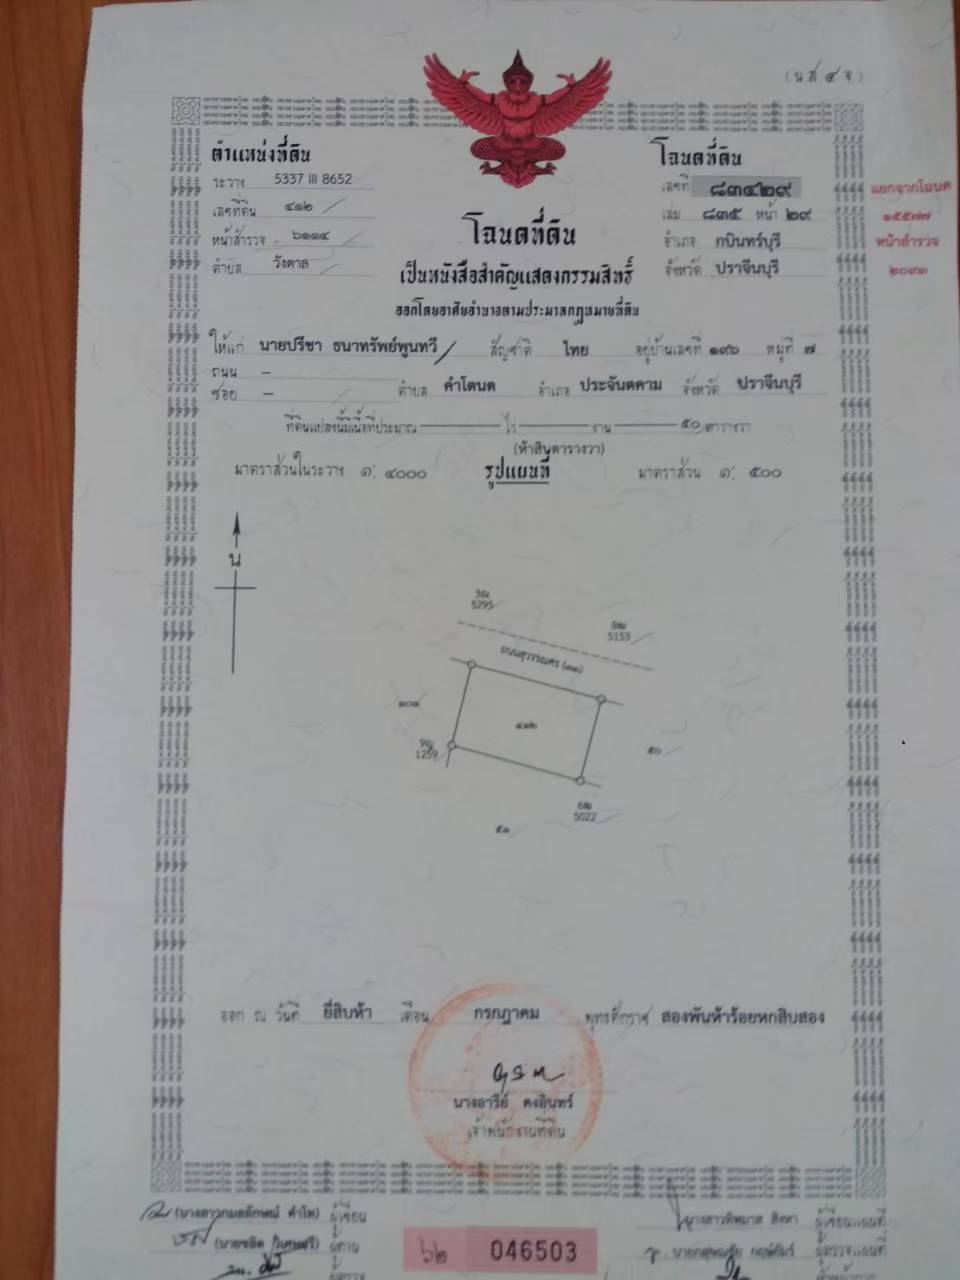 (น.ส ๔ จ)
ตำแหน่งที่ดิน
โฉนดที่ดิน
ระวาง 5337 III 8652
เลขที่ ๘๓๔๒๙
แยกจากโฉนด
เลขที่ดิน ๔๑๒
เล่ม ๘๓๕ หน้า ๒๙
๑๕๕๗๗
หน้าสำรวจ ๖๑๑๔
อำเภอ กบินทร์บุรี
หน้าสำรวจ
ตำบล วังดาล
จังหวัด ปราจีนบุรี
๒๐๙๑
โฉนดที่ดิน
เป็นหนังสือสำคัญแสดงกรรมสิทธิ์
ออกโดยอาศัยอำนาจตามประมวลกฎหมายที่ดิน
ให้แก่ นายปรีชา ธนาทรัพย์พูนทวี สัญชาติ ไทย อยู่บ้านเลขที่ ๑๙๖ หมู่ที่ ๗
ถนน –
ซอย – ตำบล คำโตนด อำเภอ ประจันตคาม จังหวัด ปราจีนบุรี
ที่ดินแปลงนี้มีเนื้อที่ประมาณ ไร่ งาน ๕๐ ตารางวา
(ห้าสิบตารางวา)
มาตราส่วนในระวาง ๑: ๔๐๐๐ รูปแผนที่ มาตราส่วน ๑: ๕๐๐
น
5295
5153
ถนนสุวรรณศร (๓๓)
๑๐๑
๔๑๒
๕๐
1259
5022
๕๑
ออก ณ วันที่ ยี่สิบห้า เดือน กรกฎาคม พุทธศักราช สองพันห้าร้อยหกสิบสอง
นางอารีย์ คงอินทร์
เจ้าพนักงานที่ดิน
ผู้เขียน
ผู้เขียนแผนที่
ผู้ทาน
ผู้ตรวจแผนที่
๖๒ 046503
ผู้ตรวจ